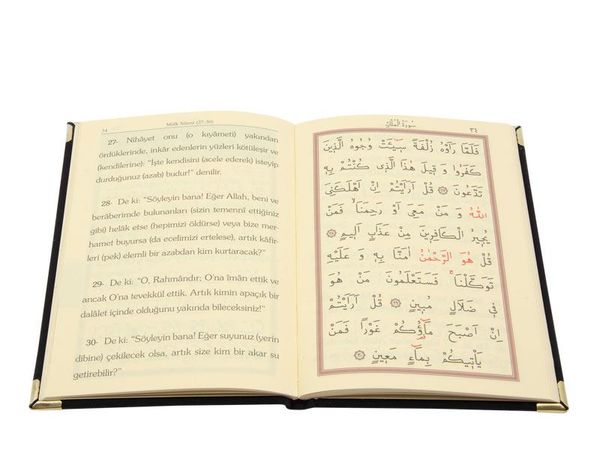 34
Mülk Sûresi (27-30)
27- Nihâyet onu (o kıyâmeti) yakından
ördüklerinde, inkâr edenlerin yüzleri kötüleşir ve
(kendilerine): "İşte kendisini (acele ederek) isteyip
durduğunuz (azab) budur!" denilir.
28- De ki: "Söyleyin bana! Eğer Allah, beni ve
berâberimde bulunanları (sizin temennî ettiğiniz
gibi) helâk etse (hepimizi öldürse) veya bize mer-
hamet buyursa (da ecelimizi ertelese), artık kâfir-
leri (pek) elemli bir azabdan kim kurtaracak?"
29- De ki: "O, Rahmândır; O'na îmân ettik ve
ancak O'na tevekkül ettik. Artık kimin apaçık bir
dalâlet içinde olduğunu yakında bileceksiniz!"
30- De ki: "Söyleyin bana! Eğer suyunuz (yerin
dibine) çekilecek olsa, artık size kim bir akar su
getirebilir?"
سُورَةُ الْمُلْكِ
٣٤
فَلَمَّا رَاَوْهُ زُلْفَةً سٖيٓـَٔتْ وُجُوهُ الَّذٖينَ
كَفَرُوا وَ قٖيلَ هٰذَا الَّذٖى كُنْتُمْ بِهٖ
تَدَّعُونَ ۞ قُلْ اَرَاَيْتُمْ اِنْ اَهْلَكَنِىَ
اللّٰهُ وَ مَنْ مَعِىَ اَوْ رَحِمَنَاۙ فَمَنْ
يُجٖيرُ الْكَافِرٖينَ مِنْ عَذَابٍ اَلٖيمٍ ۞
قُلْ هُوَ الرَّحْمٰنُ اٰمَنَّا بِهٖ وَ عَلَيْهِ
تَوَكَّلْنَاۚ فَسَتَعْلَمُونَ مَنْ هُوَ
فٖى ضَلَالٍ مُبٖينٍ ۞ قُلْ اَرَاَيْتُمْ
اِنْ اَصْبَحَ مَٓاؤُ۬كُمْ غَوْرًا فَمَنْ
يَاْتٖيكُمْ بِمَٓاءٍ مَعٖينٍ ۞